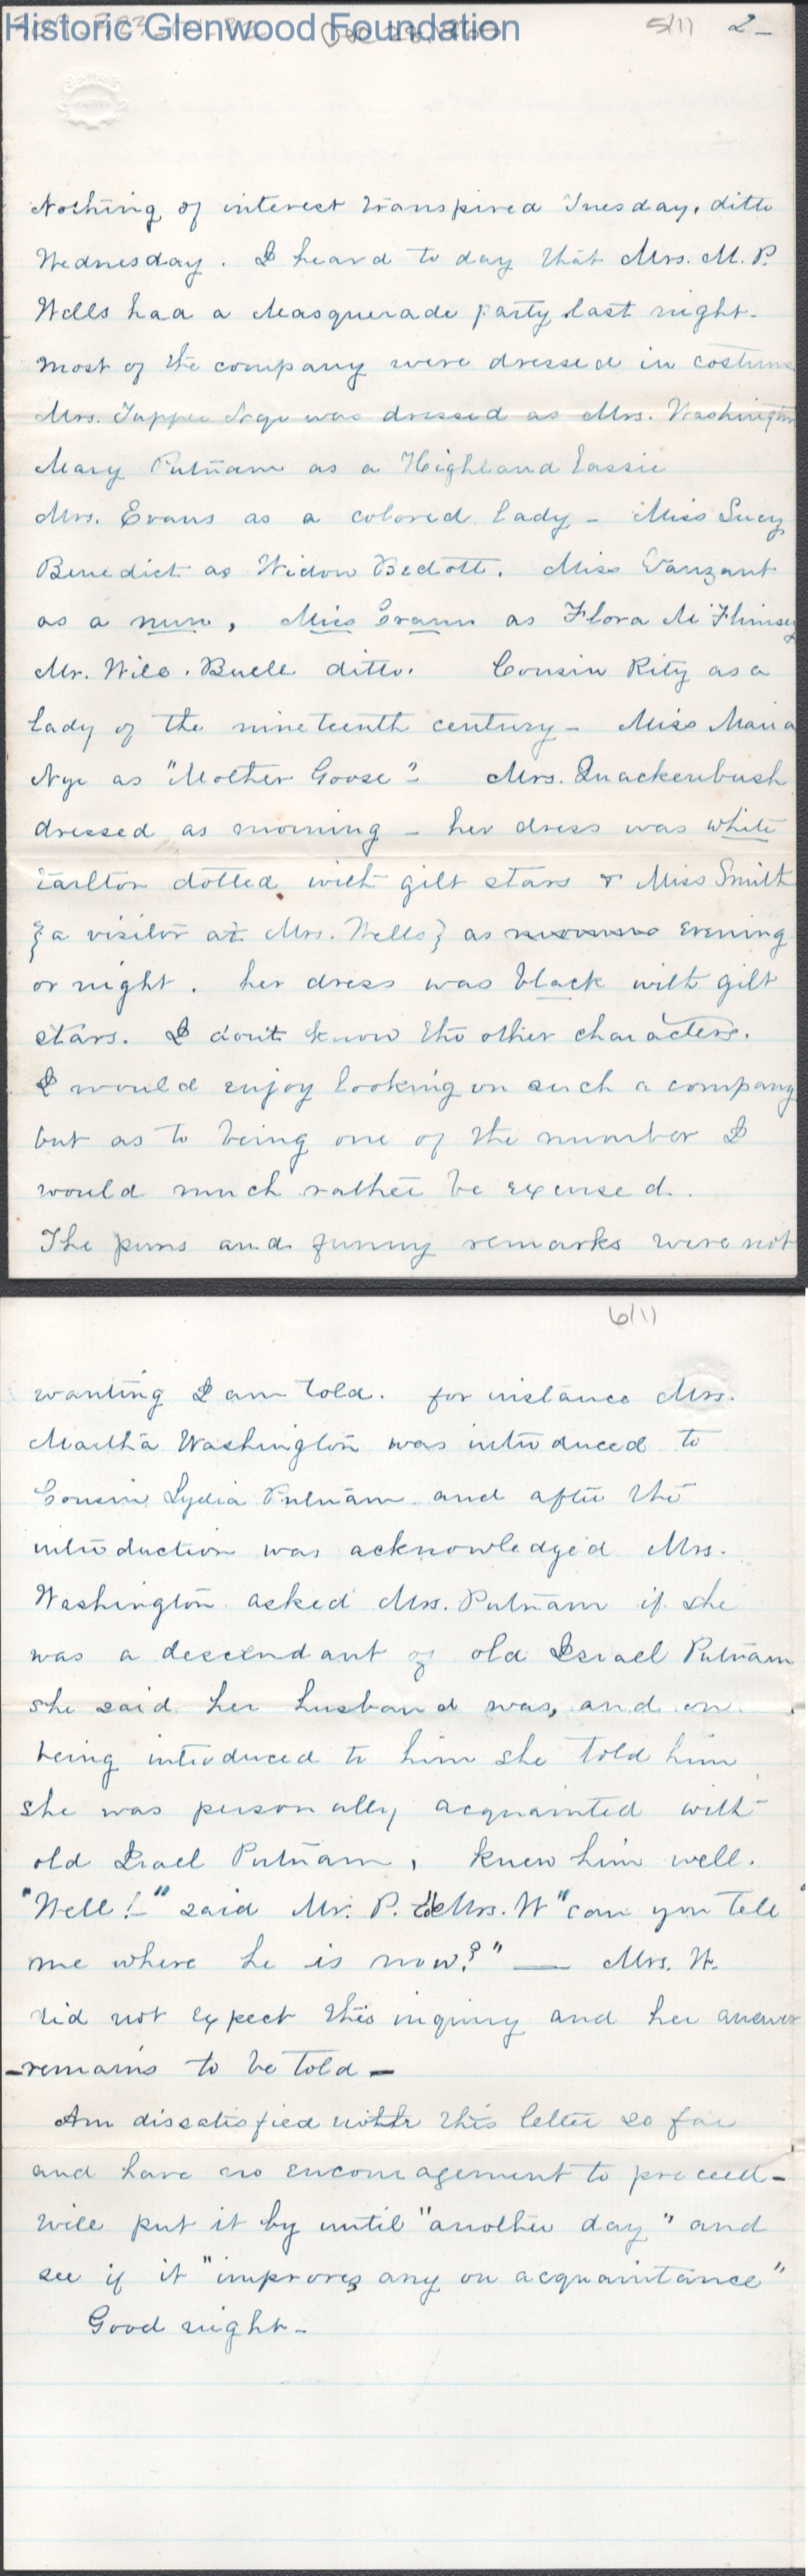 Historic Glenwood Foundation
5/11 2-
Nothing of interest transpired Tuesday, ditto
Wednesday. I heard to day that Mrs. M. P.
Wells had a Masquerade party last night.
most of the company were dressed in costume
Mrs. Tupper Nye was dressed as Mrs. Washington
Mary Putnam as a Highland lassie
Mrs. Evans as a colored lady - Miss Lucy
Benedict as Widow Bedott. Miss Vanzant
as a nun, Miss as Flora McFlimsey
Mr. Will. Buell ditto. Cousin Rity as a
lady of the nineteenth century - Miss Maria
Nye as "Mother Goose" Mrs. Quackenbush
dressed as morning - her dress was white
tarlton dotted with gilt stars & Miss Smith
{a visitor at Mrs. Wells} as evening
or night. her dress was black with gilt
stars. I dont know the other characters.
I would enjoy looking on such a company
but as to being one of the number I
would much rather be excused.
The puns and funny remarks were not
6/11
wanting I am told. for instance Mrs.
Martha Washington was introduced to
Cousin Lydia Putnam and after the
introduction was acknowledged Mrs.
Washington asked Mrs. Putnam if she
was a descendant of old Israel Putnam
she said her husband was, and on
being introduced to him she told him
she was personally acquainted with
old Israel Putnam, knew him well.
"Well!" said Mr. P. to Mrs. W "can you tell
me where he is now?" — Mrs. W.
did not expect this inquiry and her answer
-remains to be told-
Am dissatisfied with this letter so far
and have no encouragement to proceed-
will put it by until "another day" and
see if it "improves any on acquaintance"
Good night-